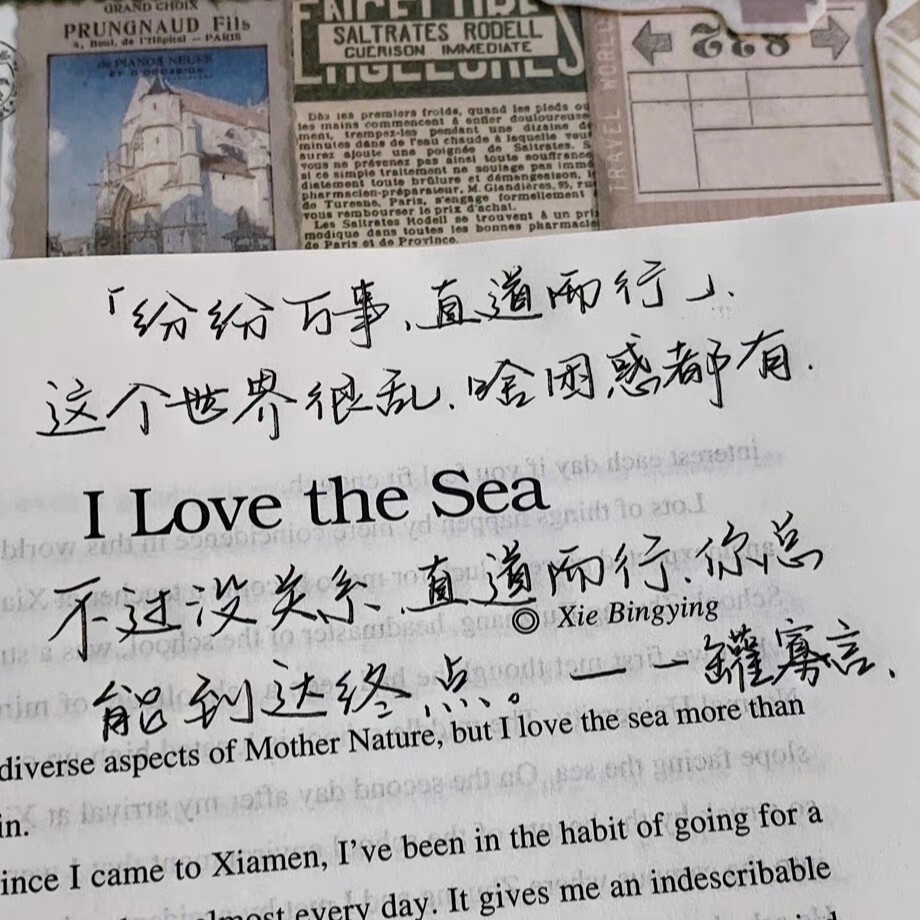 GRAND CHOIX
PRUNGNAUD Fils
4, Boul. de l'Hôpital — PARIS
de PIANOS NEUFS
ET D'OCCASION
SALTRATES RODELL
GUERISON IMMEDIATE
ENGELURES
Dès les premiers froids, quand les pieds ou
les mains commencent à enfler douloureuse
ment, trempez-les pendant une dizaine de
minutes dans de l'eau chaude à laquelle vous
aurez ajouté une poignée de Saltrates. S
vous ne prévenez pas ainsi toute souffrance
si ce simple traitement ne soulage pas immé
diatement toute brûlure et démangeaison, l
pharmacien-préparateur, M. Glandières, 95, ru
de Turenne, Paris, s'engage formellement
vous rembourser le prix d'achat.
Les Saltrates Rodell se trouvent à un prix
modique dans toutes les bonnes pharmacie
de Paris et de Province.
TRAVEL WORLD
「纷纷万事、直道而行」、
这个世界很乱、啥困惑都有.
I Love the Sea
不过没关系、直道而行、你总
◎ Xie Bingying
能到达终点。——罐寡言、
diverse aspects of Mother Nature, but I love the sea more than
in.
ince I came to Xiamen, I've been in the habit of going for a
almost every day. It gives me an indescribable